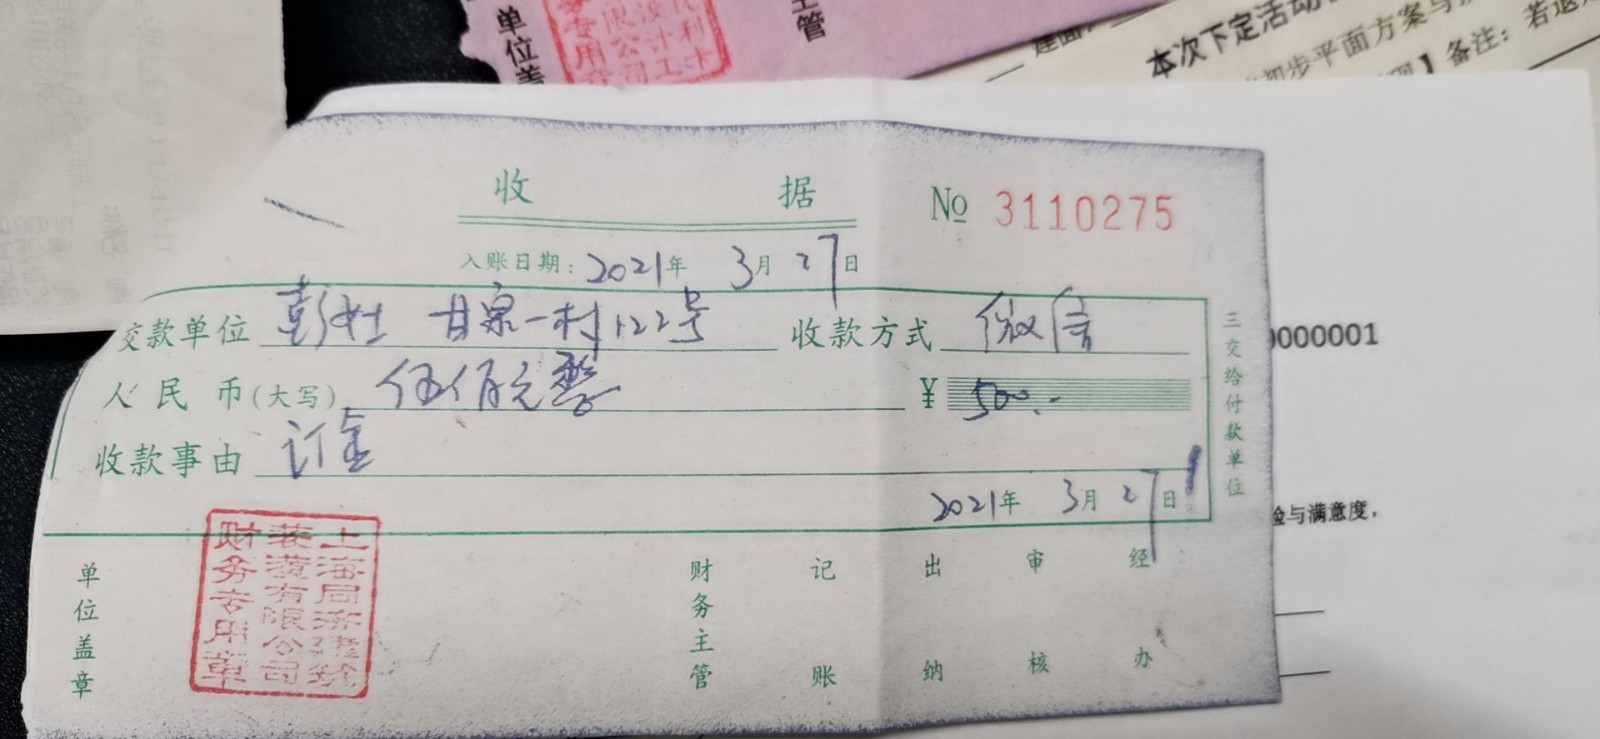 单位盖
专用章
限公司
主管
建面
本次下定活动
初步平面方案与
】备注：若退
收 据
№ 3110275
入账日期：2021年 3月 27日
交款单位 彭女士 甘泉一村122号 收款方式 微信
人民币（大写） 伍佰元整 ¥ 500.-
收款事由 订金
2021年 3月 27日
三交给付款单位
0000001
验与满意度，
单位盖章
上海同济建筑
装潢有限公司
财务专用章
财务主管
记账
出纳
审核
经办